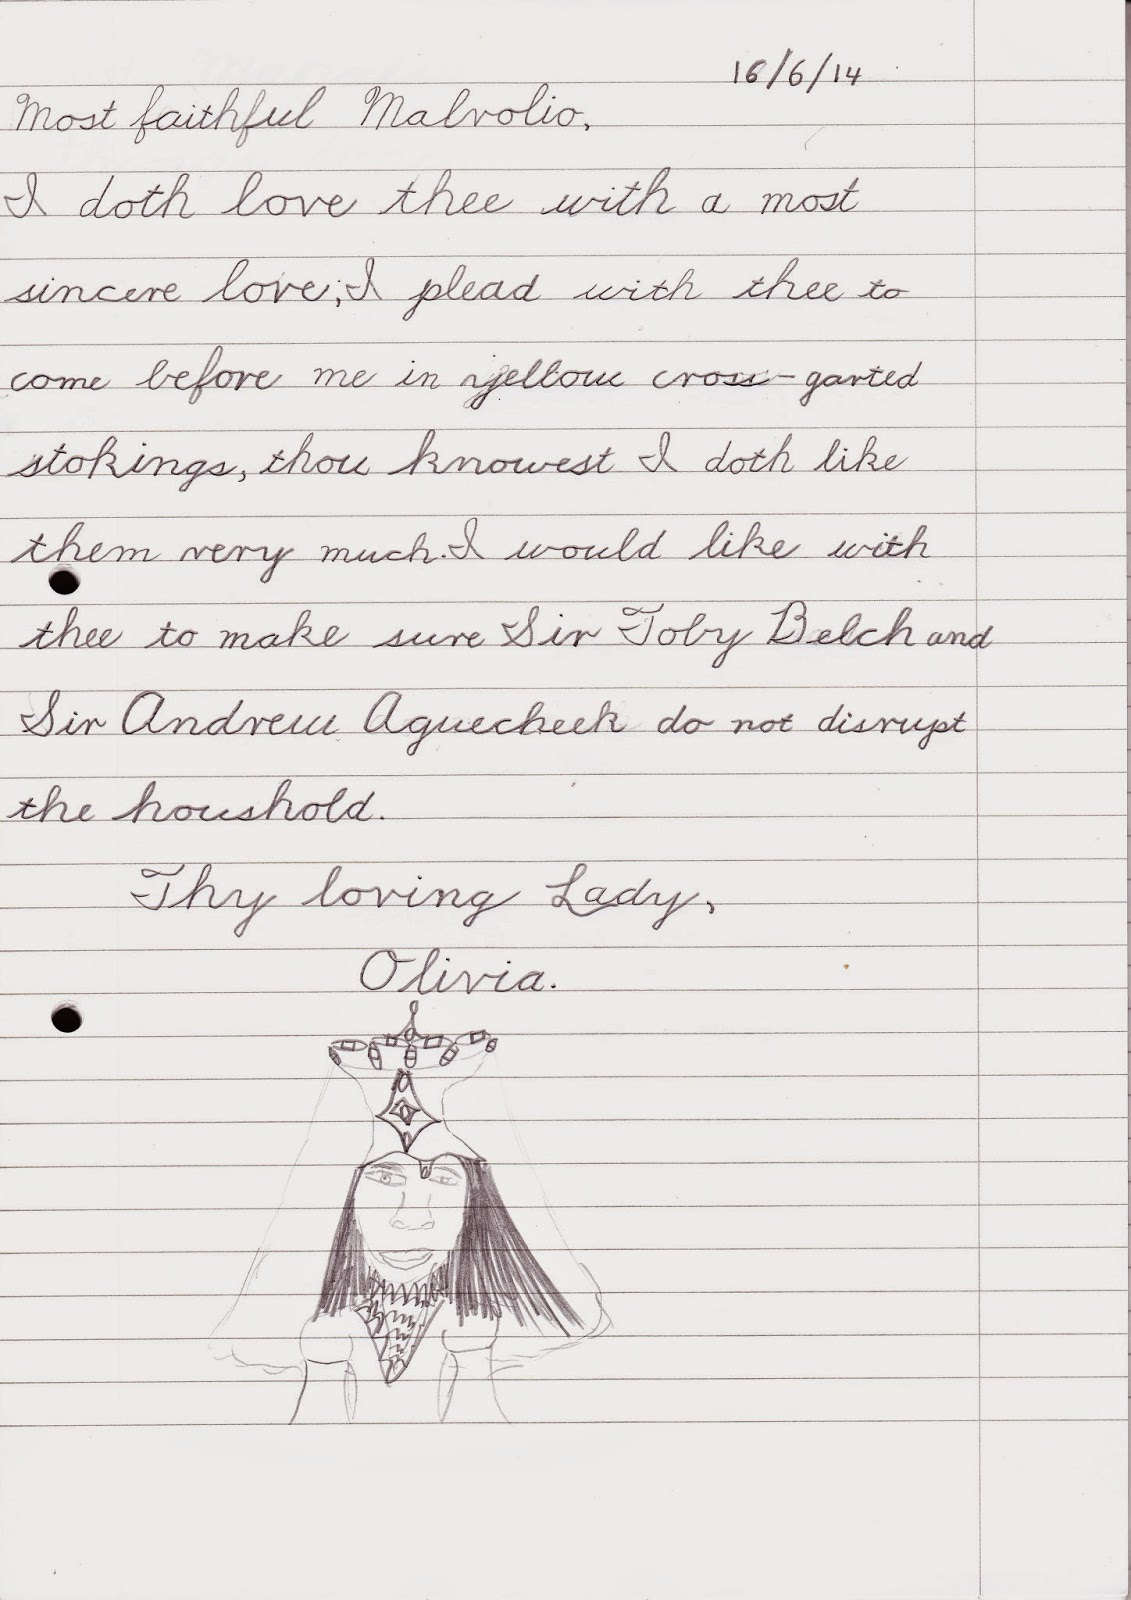 16/6/14
Most faithful Malvolio,
I doth love thee with a most
sincere love; I plead with thee to
come before me in yellow cross-garted
stokings, thou knowest I doth like
them very much. I would like with
thee to make sure Sir Toby Belch and
Sir Andrew Aguecheek do not disrupt
the houshold.
Thy loving Lady,
Olivia.